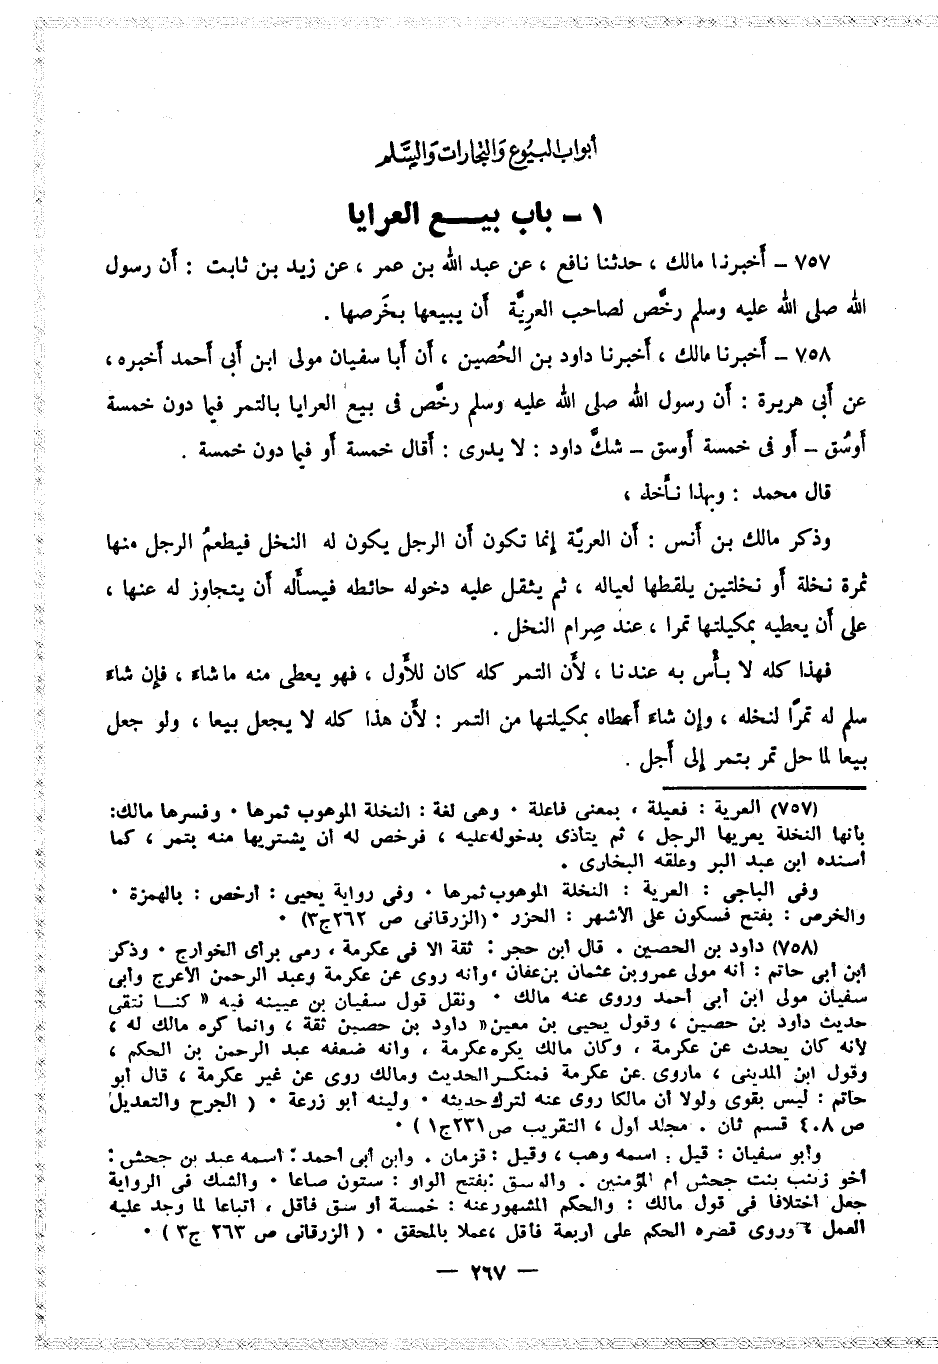 أبواب البيوع والتجارات والسَّلم
١ – باب بيـــع العرايا
٧٥٧ – أخبرنا مالك ، حدثنا نافع ، عن عبد الله بن عمر ، عن زيد بن ثابت : أن رسول
الله صلى الله عليه وسلم رخَّص لصاحب العريَّة أن يبيعها بخَرصها .
٧٥٨ – أخبرنا مالك ، أخبرنا داود بن الحُصين ، أن أبا سفيان مولى ابن أبى أحمد أخبره ،
عن أبى هريرة : أن رسول الله صلى الله عليه وسلم رخَّص فى بيع العرايا بالتمر فيما دون خمسة
أوسُق – أو فى خمسة أوسق – شكَّ داود : لا يدرى : أقال خمسة أو فيما دون خمسة .
قال محمد : وبهذا نأخذ ،
وذكر مالك بن أنس : أن العريّة إنما تكون أن الرجل يكون له النخل فيطعمُ الرجل منها
ثمرة نخلة أو نخلتين يلقطها لعياله ، ثم يثقل عليه دخوله حائطه فيسأله أن يتجاوز له عنها ،
على أن يعطيه بمكيلتها تمرا ، عند صِرام النخل .
فهذا كله لا بأس به عندنا ، لأن التمر كله كان للأول ، فهو يعطى منه ما شاء ، فإن شاء
سلم له تمرًا لنخله ، وإن شاء أعطاه بمكيلتها من التمر : لأن هذا كله لا يجعل بيعا ، ولو جعل
بيعا لما حل تمر بتمر إلى أجل .
(٧٥٧) العرية : فعيلة ، بمعنى فاعلة ٠ وهى لغة : النخلة الموهوب ثمرها ٠ وفسرها مالك:
بأنها النخلة يعريها الرجل ، ثم يتأذى بدخوله عليه ، فرخص له أن يشتريها منه بتمر ، كما
أسنده ابن عبد البر وعلقه البخارى .
وفى الباجى : العرية : النخلة الموهوب ثمرها ٠ وفى رواية يحيى : أرخص : بالهمزة ٠
والخرص : بفتح فسكون على الأشهر : الحزر ٠ (الزرقانى ص ٢٦٢ج٣) ٠
(٧٥٨) داود بن الحصين . قال ابن حجر : ثقة الا فى عكرمة ، رمى برأى الخوارج ٠ وذكر
ابن أبى حاتم : أنه مولى عمرو بن عثمان بن عفان ، وأنه روى عن عكرمة وعبد الرحمن الأعرج وأبى
سفيان مولى ابن أبى أحمد وروى عنه مالك ٠ ونقل قول سفيان بن عيينه فيه « كنا نتقى
حديث داود بن حصين ، وقول يحيى بن معين « داود بن حصين ثقة ، وانما كره مالك له ،
لأنه كان يحدث عن عكرمة ، وكان مالك يكره عكرمة ، وأنه ضعفه عبد الرحمن بن الحكم ،
وقول ابن المدينى ، ماروى عن عكرمة فمنكر الحديث ومالك روى عن غير عكرمة ، قال أبو
حاتم : ليس بقوى ولولا أن مالكا روى عنه لترك حديثه ٠ ولينه أبو زرعة ٠ ( الجرح والتعديل
ص ٤٠٨ قسم ثان . مجلد أول ، التقريب ص ٢٣١ج١ ) ٠
وأبو سفيان : قيل : اسمه وهب ، وقيل : قزمان . وابن أبى أحمد : اسمه عبد بن جحش :
أخو زينب بنت جحش أم المؤمنين . والوسق : بفتح الواو : ستون صاعا ٠ والشك فى الرواية
جعل اختلافا فى قول مالك : والحكم المشهور عنه : خمسة أو سق فأقل ، اتباعا لما وجد عليه
العمل ، وروى قصره الحكم على أربعة فأقل ، عملا بالمحقق ٠ ( الزرقانى ص ٢٦٣ ج٣ ) ٠
— ٢٦٧ —